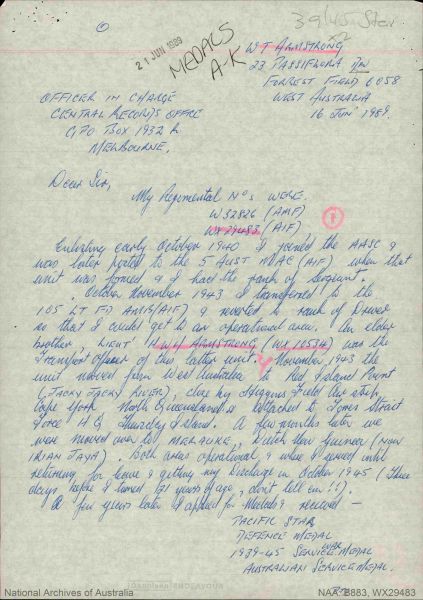 39/45 Star
21 JUN 1989
MEDALS
A-K
W T ARMSTRONG
23 PASSIFLORA
FORREST FIELD 6058
WEST AUSTRALIA
16 JUN 1989.
OFFICER IN CHARGE
CENTRAL RECORDS OFFICE
GPO BOX 1932 R
MELBOURNE.
Dear Sir,
My Regimental Nos WERE.
W32826 (AMF)
WX29483 (AIF)
1
Enlisting early October 1940 I joined the AASC &
was later posted to the 5 AUST MAC (AIF) when that
unit was formed & I had the rank of Sergeant.
October November 1943 I transferred to the
105 LT FD AMB (AIF) & reverted to rank of Driver
so that I could get to an operational area. An elder
brother, LIEUT ARMSTRONG (WX 10534) was the
Transport officer of this latter unit. November 1943 the
unit moved from West Australia to Red Island Point
(JACKY JACKY RIVER), close by Higgins Field Air strip
Cape York North Queensland & attached to Torres Strait
Force H Q Thursday Island. A few months later we
were moved over to MERAUKE, Dutch New Guinea (NOW
IRIAN JAYA). Both areas operational & where I served until
returning for leave & getting my Discharge in October 1945 (Three
days before I turned 21 years of age, don't tell em!!).
A few years later I applied for Medals & received —
PACIFIC STAR
DEFENCE MEDAL
1939-45 WAR MEDAL
AUSTRALIAN SERVICE MEDAL.
National Archives of Australia
NAA: B883, WX29483